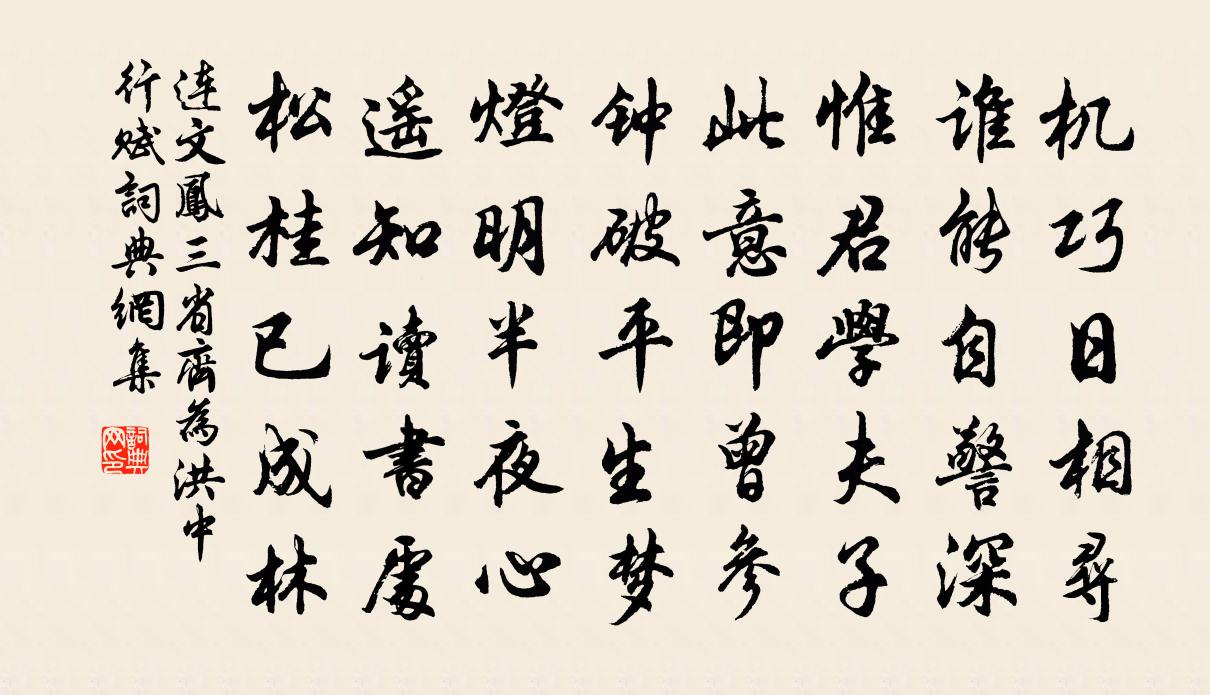 机巧日相尋
谁能自警深
惟君學夫子
此意即曾參
钟破平生梦
燈明半夜心
遥知讀書處
松桂已成林
连文鳳三省齋為洪中
行赋詞典網集
詞典
网印